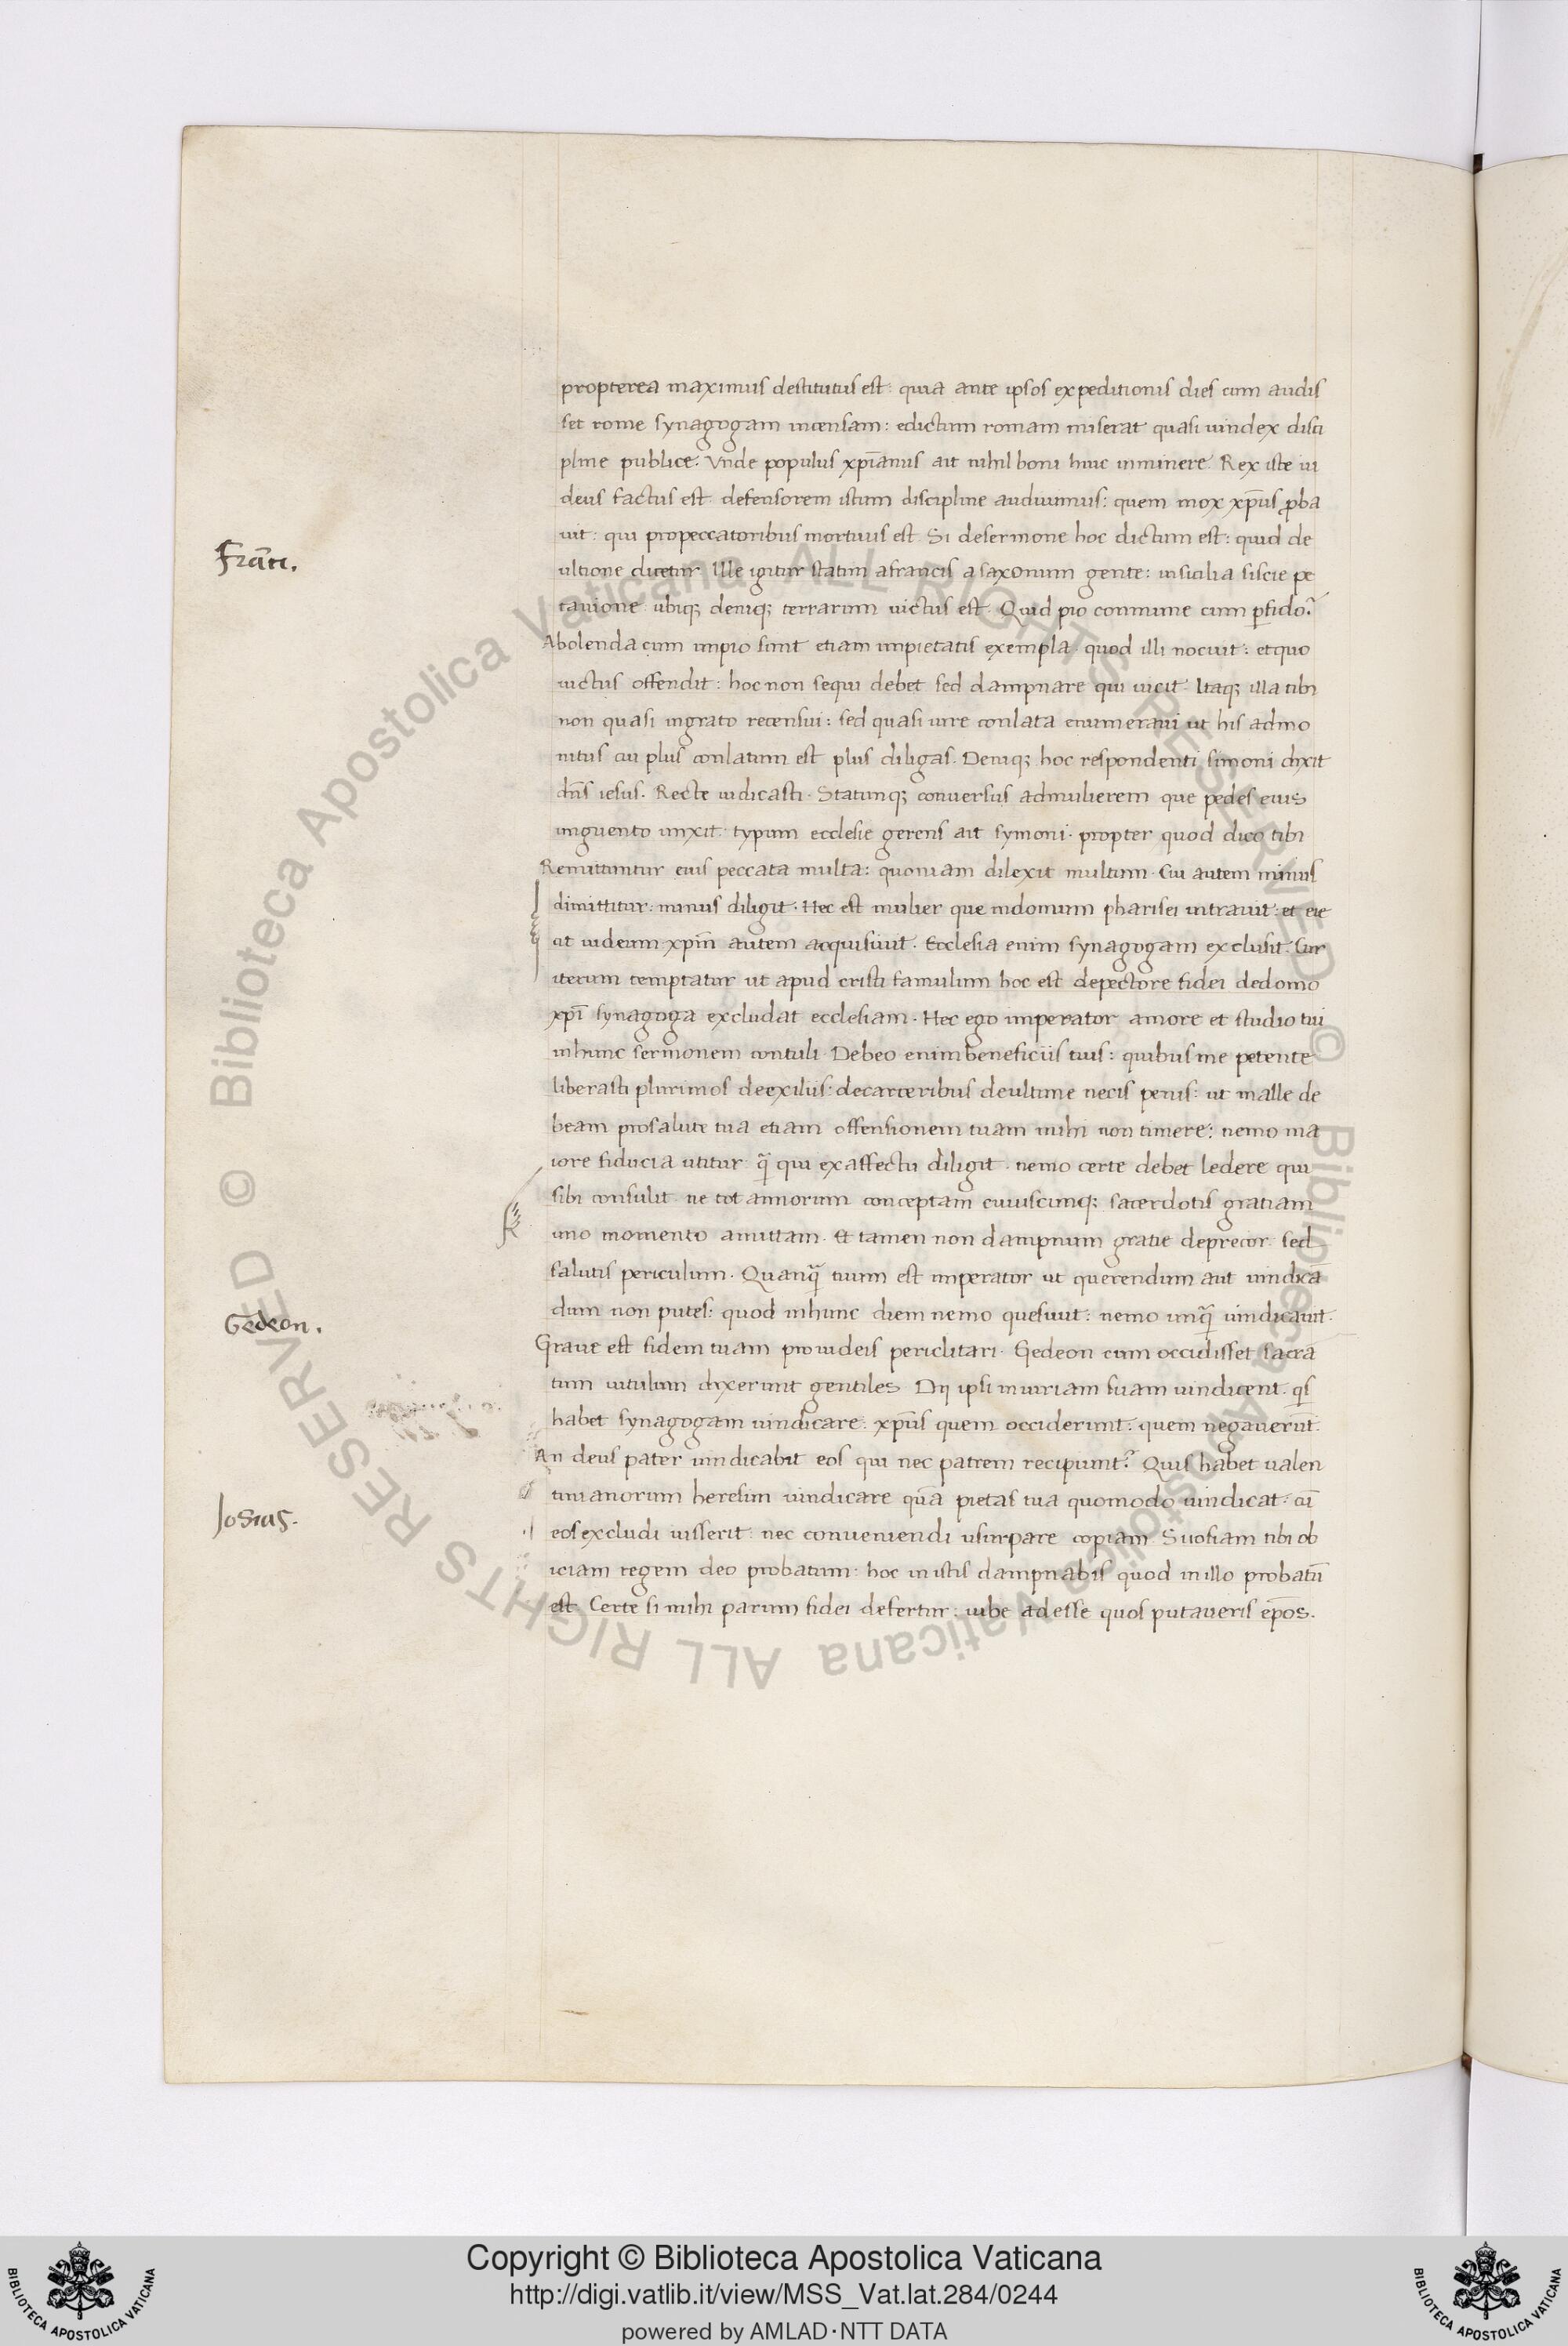 propterea maximus destitutus est: quia ante ipsos expeditionis dies cum audis
set rome synagogam incensam: edictum romam miserat quasi uindex disci
pline publice. Vnde populus xp̄ianus ait nihil boni huic inminere. Rex iste iu
deus factus est. defensorem istum discipline audiuimus: quem mox xp̄us ꝓba
uit: qui propeccatoribus mortuus est. Si desermone hoc dictum est: quid de
Frāci.
ultione dicetur. Ille igitur statim afrancis asaxonum gente: insicilia siscie pe
tauione ubiqꝫ deniqꝫ terrarum uictus est. Quid pio commune cum ꝑfido?
Abolenda cum impio sunt etiam impietatis exempla. quod illi nocuit: etquo
uictus offendit: hoc non sequi debet sed dampnare qui uicit. Itaqꝫ illa tibi
non quasi ingrato recensui: sed quasi iure conlata enumeraui ut his admo
nitus cui plus conlatum est plus diligas. Deniqꝫ hoc respondenti simoni dixit
dn̄s iesus. Recte iudicasti. Statimqꝫ conuersus admulierem que pedes eius
unguento unxit. typum ecclesie gerens ait symoni. propter quod dico tibi
Remittuntur eius peccata multa: quoniam dilexit multum. Cui autem minus
dimittitur: minus diligit. Hec est mulier que indomum pharisei intrauit: et eie
cit iudeum xp̄m autem acquisiuit. Ecclesia enim synagogam exclusit. Cur
iterum temptatur ut apud cristi famulum hoc est depectore fidei dedomo
xp̄i synagoga excludat ecclesiam. Hec ego imperator amore et studio tui
inhunc sermonem contuli. Debeo enim beneficiis tuis: quibus me petente
liberasti plurimos deexiliis: decarceribus deultime necis penis: ut malle de
beam prosalute tua etiam offensionem tuam mihi non timere: nemo ma
iore fiducia utitur. q̄ qui exaffectu diligit. nemo certe debet ledere qui
sibi consulit. ne tot annorum conceptam cuiuscumqꝫ sacerdotis gratiam
uno momento amittam. Et tamen non dampnum gratie deprecor. sed
salutis periculum. Quanq̄ tuum est imperator ut querendum aut uindicā
Gedeon.
dum non putes: quod inhunc diem nemo quesiuit: nemo unq̄ uindicauit.
Graue est fidem tuam proiudeis periclitari. Gedeon cum occidisset sacra
tum uitulum dixerunt gentiles. Dij ipsi iniuriam suam uindicent. q̄s
habet synagogam uindicare: xp̄us quem occiderunt: quem negauerūt.
An deus pater uindicabit eos qui nec patrem recipiunt? Quis habet ualen
Josias.
tinianorum heresim uindicare quā pietas tua quomodo uindicat: cū
eos excludi iusserit: nec conueniendi usurpare copiam. Si iosiam tibi ob
iciam regem deo probatum: hoc in istis dampnabis quod in illo probatū
est. Certe si mihi parum fidei defertur: iube adesse quos putaueris ep̄os.
© Biblioteca Apostolica Vaticana ALL RIGHTS RESERVED
© Biblioteca Apostolica Vaticana ALL RIGHTS RESERVED
Copyright © Biblioteca Apostolica Vaticana
http://digi.vatlib.it/view/MSS_Vat.lat.284/0244
powered by AMLAD·NTT DATA
BIBLIOTECA APOSTOLICA VATICANA
BIBLIOTECA APOSTOLICA VATICANA